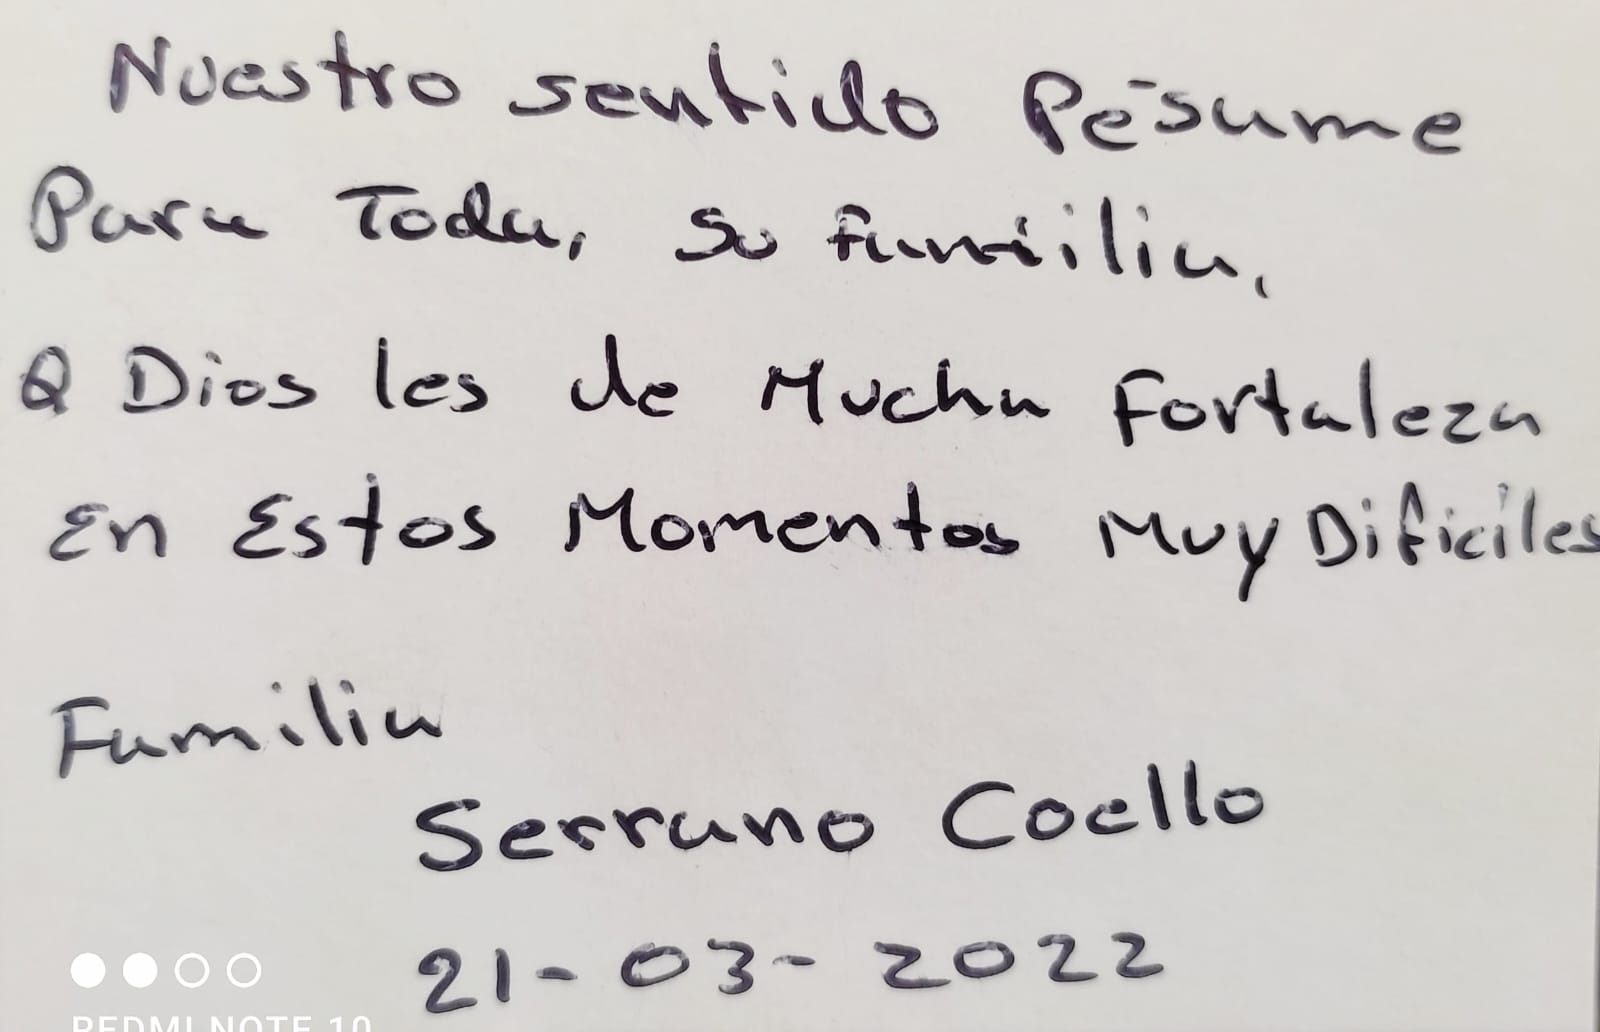 Nuestro sentido Pésame
Para Toda, su familia,
Q Dios les de Mucha Fortaleza
En Estos Momentos Muy Dificiles
Familia
Serrano Coello
21-03-2022
REDMI NOTE 10